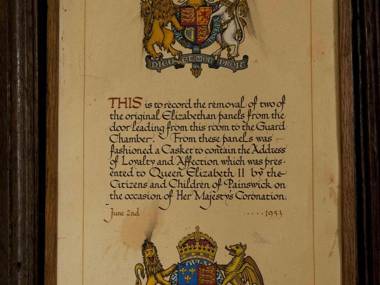 DIEU ET MON DROIT
THIS is to record the removal of two of
the original Elizabethan panels from the
door leading from this room to the Guard
Chamber. From these panels was
fashioned a Casket to contain the Address
of Loyalty and Affection which was pres-
ented to Queen Elizabeth II by the
Citizens and Children of Painswick on
the occasion of Her Majesty's Coronation.
June 2nd ···· 1953